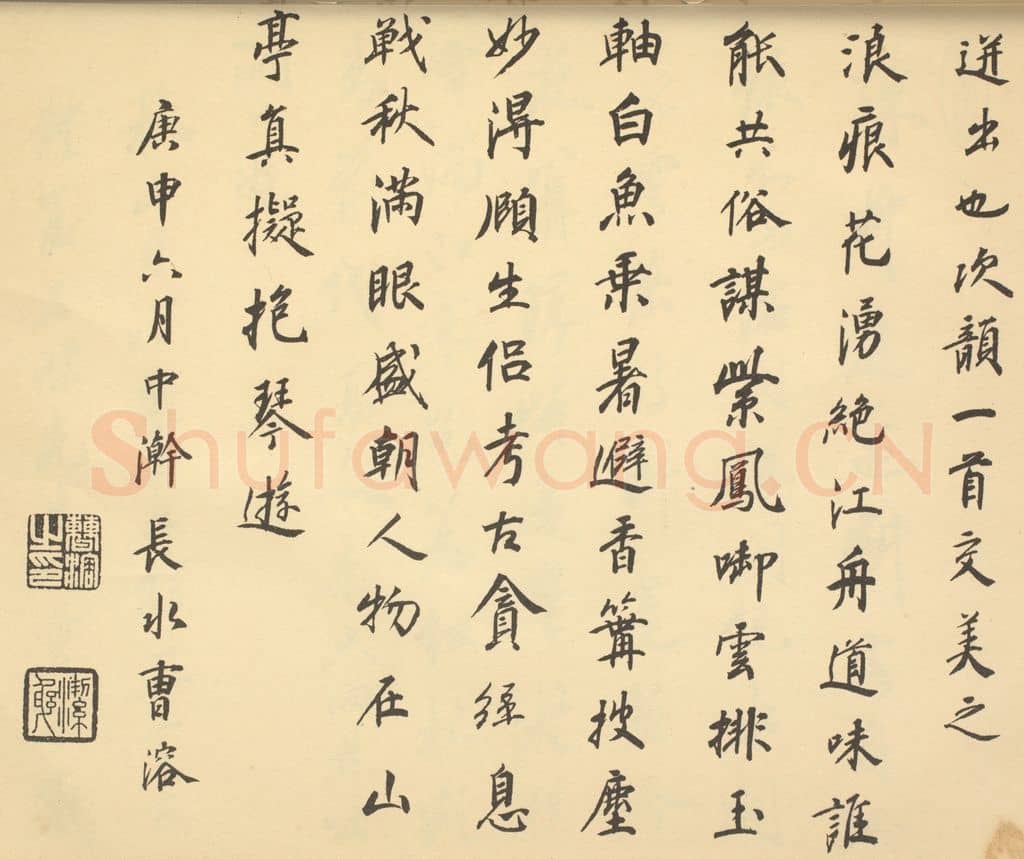 迸出也次韻一首文美之
浪痕花湧絶江舟道味誰
能共俗謀紫鳳啣雲排玉
軸白魚乗暑避香篝披塵
妙得頋生侣考古貪經息
戦秋滿眼盛朝人物在山
亭真擬抱琴遊
庚申六月中澣長水曹溶
曹溶之印
Shufawang.CN